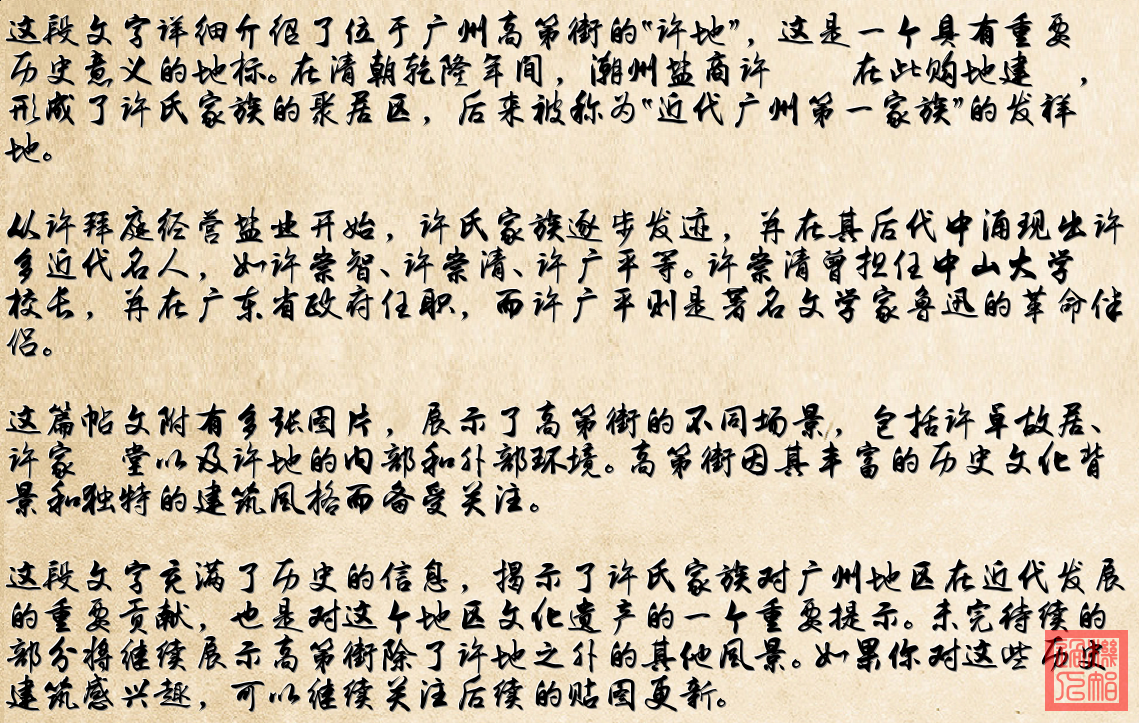 这段文字详细介绍了位于广州高第街的“许地”，这是一个具有重要
历史意义的地标。在清朝乾隆年间，潮州盐商许 在此购地建 ，
形成了许氏家族的聚居区，后来被称为“近代广州第一家族”的发祥
地。
从许拜庭经营盐业开始，许氏家族逐步发迹，并在其后代中涌现出许
多近代名人，如许崇智、许崇清、许广平等。许崇清曾担任中山大学
校长，并在广东省政府任职，而许广平则是著名文学家鲁迅的革命伴
侣。
这篇帖文附有多张图片，展示了高第街的不同场景，包括许卓故居、
许家 堂以及许地的内部和外部环境。高第街因其丰富的历史文化背
景和独特的建筑风格而备受关注。
这段文字充满了历史的信息，揭示了许氏家族对广州地区在近代发展
的重要贡献，也是对这个地区文化遗产的一个重要提示。未完待续的
部分将继续展示高第街除了许地之外的其他风景。如果你对这些历史
建筑感兴趣，可以继续关注后续的贴图更新。